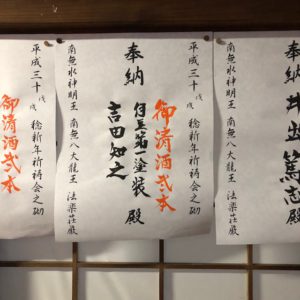 奉納
井出 篤志 殿
南無水神明王 南無八大龍王 法楽荘厳
平成三十戊戌 稔 新年祈祷会之砌
御清酒弐本
奉納
塗装 殿
吉田知之
南無水神明王 南無八大龍王 法楽荘厳
平成三十戊戌 稔 新年祈祷会之砌
御清酒弐本